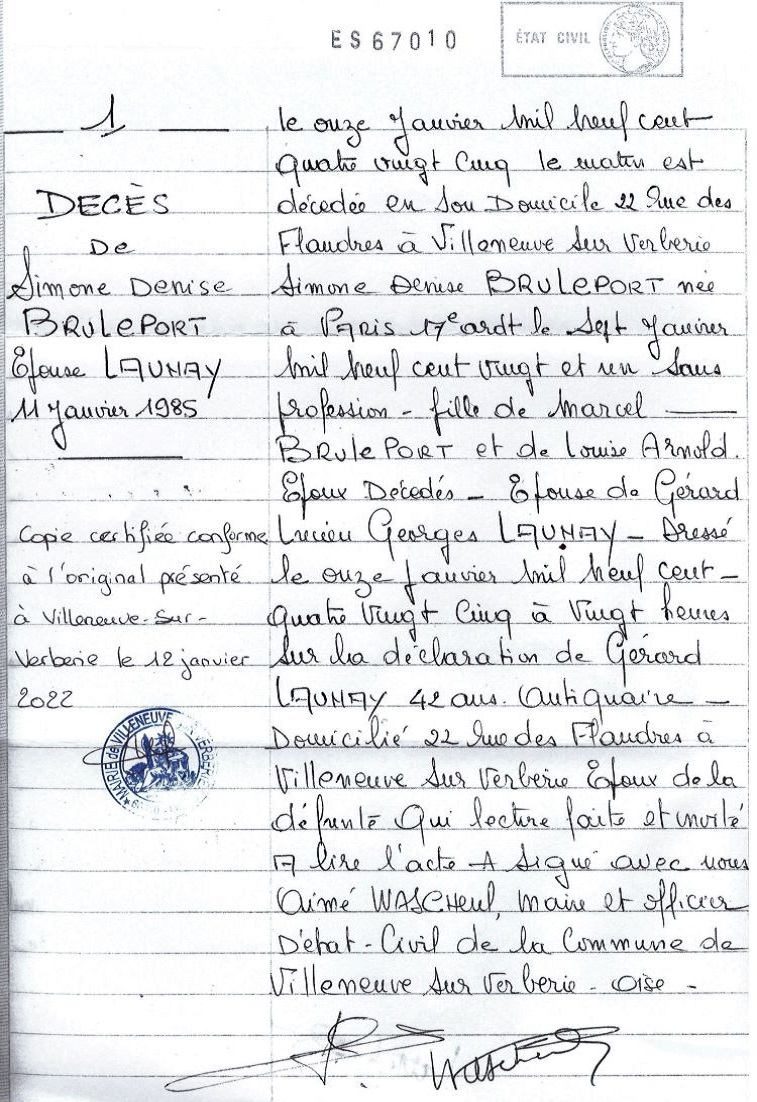 ES67010
ÉTAT CIVIL
1
DECÈS
De
Simone Denise
BRULEPORT
Epouse LAUNAY
11 Janvier 1985
Copie certifiée conforme
à l'original présenté
à Villeneuve-Sur-
Verberie le 12 janvier
2022
MAIRIE de VILLENEUVE VERBERIE
le onze Janvier Mil Neuf cent
Quatre vingt Cinq le matin est
décédée en Son Domicile 22 Rue des
Flandres à Villeneuve Sur Verberie
Simone Denise BRULEPORT née
à PARIS 17e ardt le Sept Janvier
Mil Neuf cent vingt et un Sans
profession - fille de Marcel
BRULEPORT et de Louise Arnold.
Epoux Décedés - Epouse de Gérard
Lucien Georges LAUNAY - Dressé
le onze Janvier Mil Neuf cent -
Quatre Vingt Cinq à Vingt heures
Sur la déclaration de Gérard
LAUNAY 42 ans. Antiquaire -
Domicilié 22 Rue des Flandres à
Villeneuve Sur Verberie Epoux de la
défunte Qui lecture faite et invité
A lire l'acte A Signé avec nous
Aimé WASCHEUL, Maire et officier
D'état-Civil de la Commune de
Villeneuve Sur Verberie - Oise -